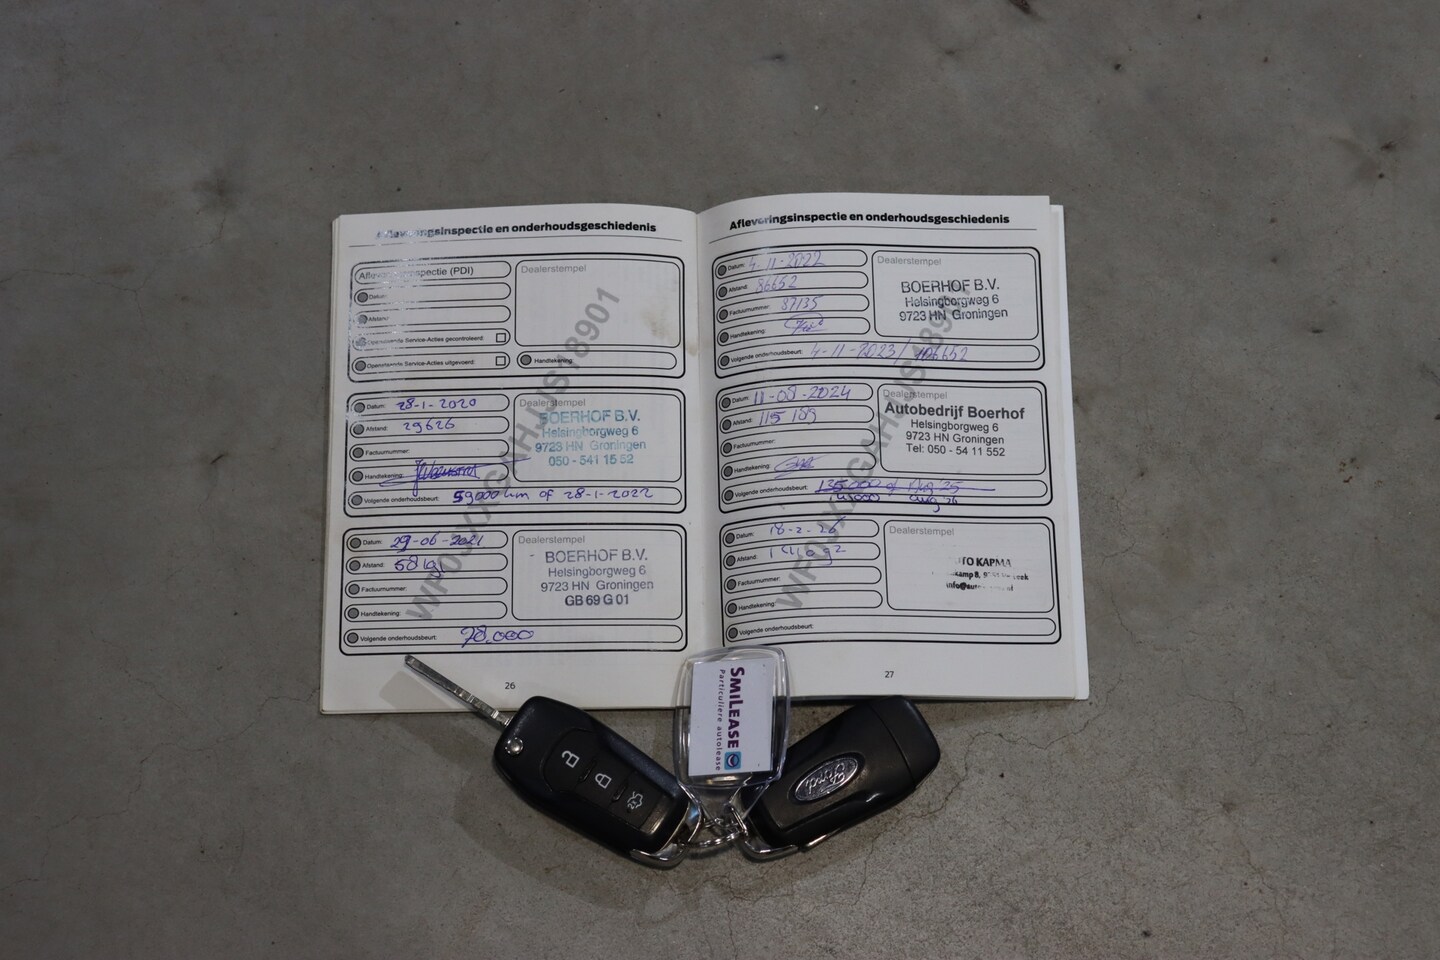 Afleveringsinspectie en onderhoudsgeschiedenis
Afleveringsinspectie (PDI)
Datum:
Afstand:
Openstaande Service-Acties gecontroleerd:
Openstaande Service-Acties uitgevoerd:
Dealerstempel
Handtekening:
Datum: 28-1-2020
Afstand: 29626
Factuurnummer:
Handtekening:
Volgende onderhoudsbeurt: 59000 km of 28-1-2022
Dealerstempel
BOERHOF B.V.
Helsingborgweg 6
9723 HN Groningen
050 - 541 15 52
Datum: 29-06-2021
Afstand:
Factuurnummer:
Handtekening:
Volgende onderhoudsbeurt: 78.000
Dealerstempel
BOERHOF B.V.
Helsingborgweg 6
9723 HN Groningen
GB 69 G 01
26
Afleveringsinspectie en onderhoudsgeschiedenis
Datum: 4-11-2022
Afstand: 86652
Factuurnummer: 87135
Handtekening:
Volgende onderhoudsbeurt: 4-11-2023 / 106652
Dealerstempel
BOERHOF B.V.
Helsingborgweg 6
9723 HN Groningen
Datum: 11-08-2024
Afstand: 115189
Factuurnummer:
Handtekening:
Volgende onderhoudsbeurt: 135.000 of Aug '25
Dealerstempel
Autobedrijf Boerhof
Helsingborgweg 6
9723 HN Groningen
Tel: 050 - 54 11 552
Datum: 18-2-26
Afstand:
Factuurnummer:
Handtekening:
Volgende onderhoudsbeurt:
Dealerstempel
KARMA
27
SMILEASE
Particuliere autolease
Ford